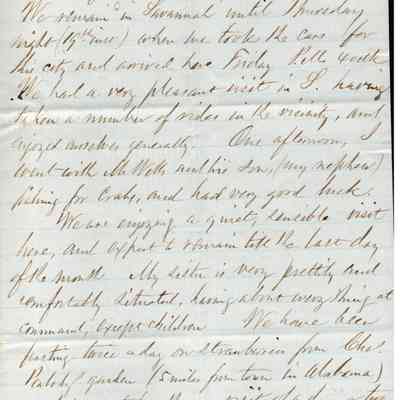 We remain'd in Savannah until Thursday
night (19th inst) when we took the cars for
this city and arrived here Friday
We had a very pleasant visit in S. having
taken a number of rides in the vicinity, and
enjoyed ourselves generally. One afternoon, I
went with Mr Wells and his son, (my nephew)
fishing for crabs, and had very good luck.
We are enjoying a quiet, sensible visit
here, and expect to remain till the last day
of the month My sister is very prettily and
comfortably situated, having about every thing at
command, except children We have been
feasting twice a day on strawberries from Chas.
garden (5 miles from town in Alabama)